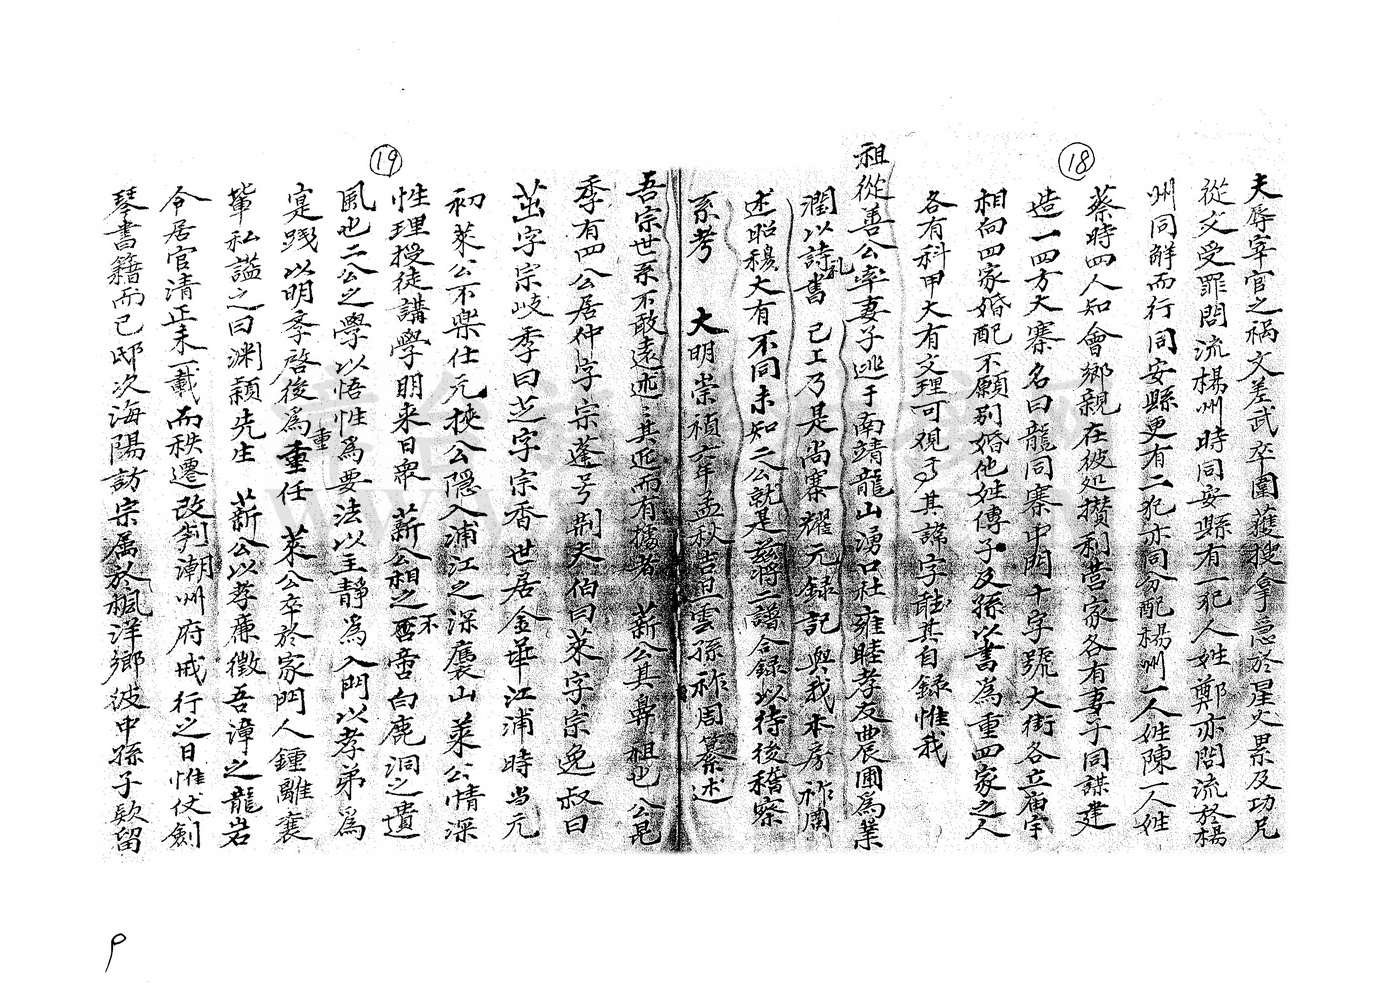 18
夫辱宰官之禍文差武卒圍獲搜拿急於星火累及功兄
從文受罪問流楊州時同安縣有一犯人姓鄭亦問流於楊
州同解而行同安縣更有二犯亦同勾配楊州一人姓陳一人姓
蔡時四人知會鄉親在彼処攢利營家各有妻子同謀建
造一四方大寨名曰龍同寨中間十字號大街各立庙宇
相向四家婚配不願別婚他姓傳子及孫以書為重四家之人
各有科甲大有文理可观焉其諱字能其自錄惟我
祖從善公率妻子逃于南靖龍山湧口社雍睦孝友農圃為業
潤以詩礼書 已工乃是尚寨耀元錄記與我本房祚周
述昭穆大有不同未知二公就是茲將二譜合錄以待後稽察
系考 大明崇禎六年孟秋吉旦雲孫祚周纂述
19
吾宗世系不敢遠述三其近而有據者 薪公其鼻祖也公昆
季有四公居仲字宗蓬号制夫伯曰萊字宗逸叔曰
茁字宗岐季曰芝字宗香世居金華江浦時当元
初萊公不樂仕元挾公隱入浦江之深裊山萊公情深
性理授徒講學明来日衆 薪公相之不啻白鹿洞之遺
風也二公之學以悟性為要法以主靜為入門以孝弟為
寔踐以明季啓後為重任 萊公卒於家門人鍾離襄
輩私謚之曰渊颖先生 薪公以孝亷徵吾漳之龍岩
令居官清正未一載而秩遷改判潮州府戒行之日惟仗劍
琴書籍而已邸次海陽訪宗属於楓洋鄉彼中孫子欵留
9